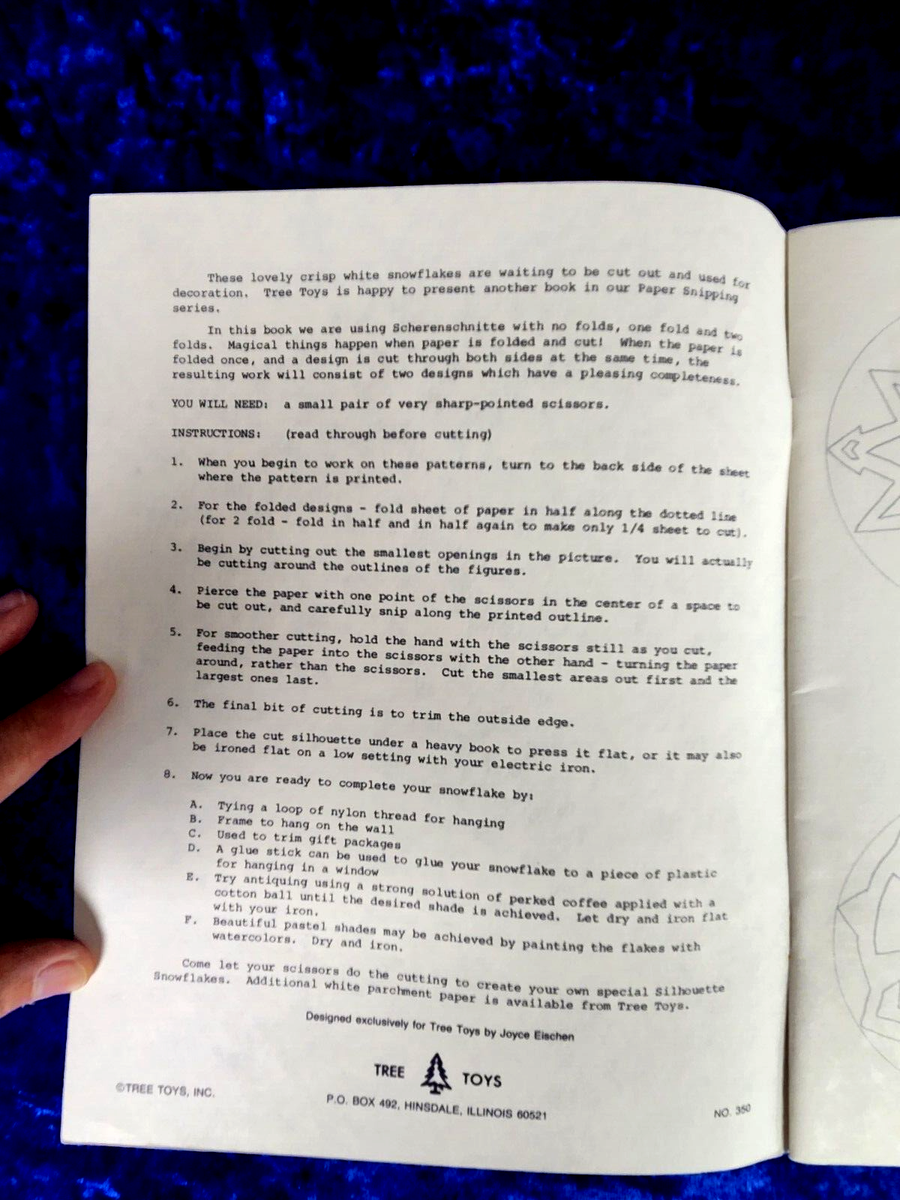 These lovely crisp white snowflakes are waiting to be cut out and used for
decoration. Tree Toys is happy to present another book in our Paper Snipping
series.
In this book we are using Scherenschnitte with no folds, one fold and two
folds. Magical things happen when paper is folded and cut! When the paper is
folded once, and a design is cut through both sides at the same time, the
resulting work will consist of two designs which have a pleasing completeness.
YOU WILL NEED: a small pair of very sharp-pointed scissors.
INSTRUCTIONS: (read through before cutting)
1. When you begin to work on these patterns, turn to the back side of the sheet
where the pattern is printed.
2. For the folded designs - fold sheet of paper in half along the dotted line
(for 2 fold - fold in half and in half again to make only 1/4 sheet to cut).
3. Begin by cutting out the smallest openings in the picture. You will actually
be cutting around the outlines of the figures.
4. Pierce the paper with one point of the scissors in the center of a space to
be cut out, and carefully snip along the printed outline.
5. For smoother cutting, hold the hand with the scissors still as you cut,
feeding the paper into the scissors with the other hand - turning the paper
around, rather than the scissors. Cut the smallest areas out first and the
largest ones last.
6. The final bit of cutting is to trim the outside edge.
7. Place the cut silhouette under a heavy book to press it flat, or it may also
be ironed flat on a low setting with your electric iron.
8. Now you are ready to complete your snowflake by:
A. Tying a loop of nylon thread for hanging
B. Frame to hang on the wall
C. Used to trim gift packages
D. A glue stick can be used to glue your snowflake to a piece of plastic
for hanging in a window
E. Try antiquing using a strong solution of perked coffee applied with a
cotton ball until the desired shade is achieved. Let dry and iron flat
with your iron.
F. Beautiful pastel shades may be achieved by painting the flakes with
watercolors. Dry and iron.
Come let your scissors do the cutting to create your own special Silhouette
Snowflakes. Additional white parchment paper is available from Tree Toys.
Designed exclusively for Tree Toys by Joyce Eischen
TREE TOYS
©TREE TOYS, INC.
P.O. BOX 492, HINSDALE, ILLINOIS 60521
NO. 350